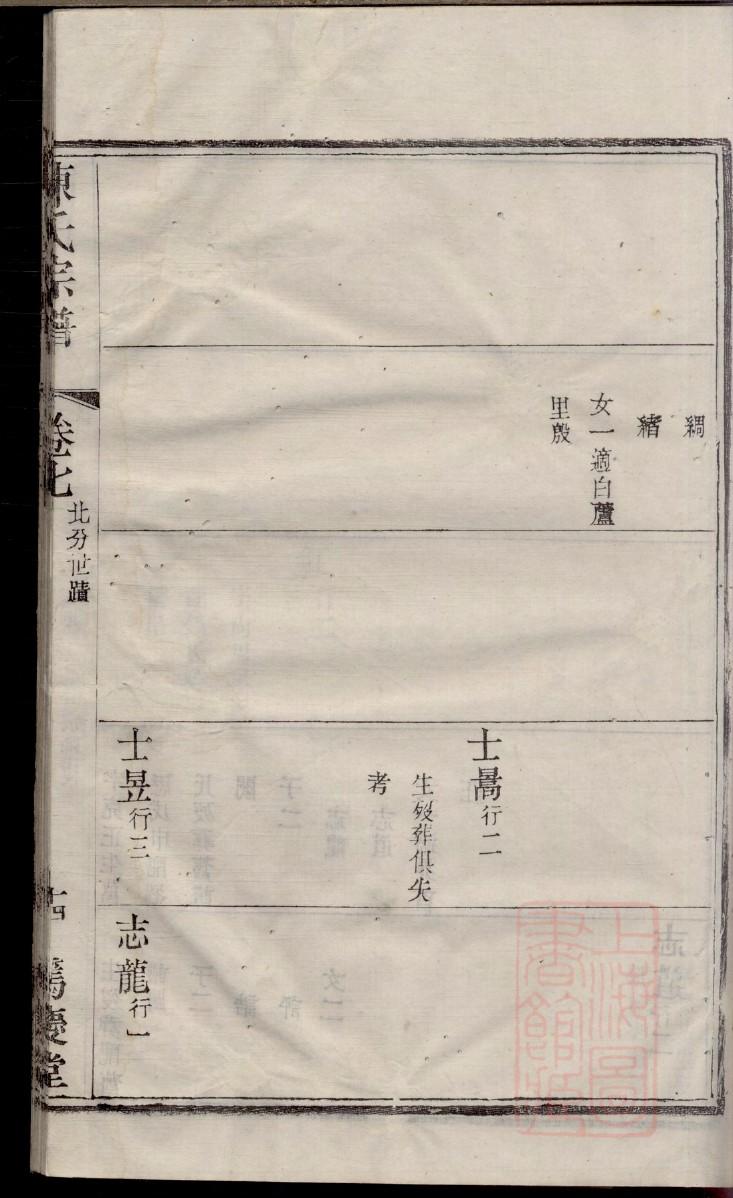 綢
緒
女一適白蘆
里殷
士暠行二
生歿葬俱失
考
士昱行三
志龍行一
陳氏宗譜
卷七
北分世蹟
十四
篤慶堂
上海圖
書館藏